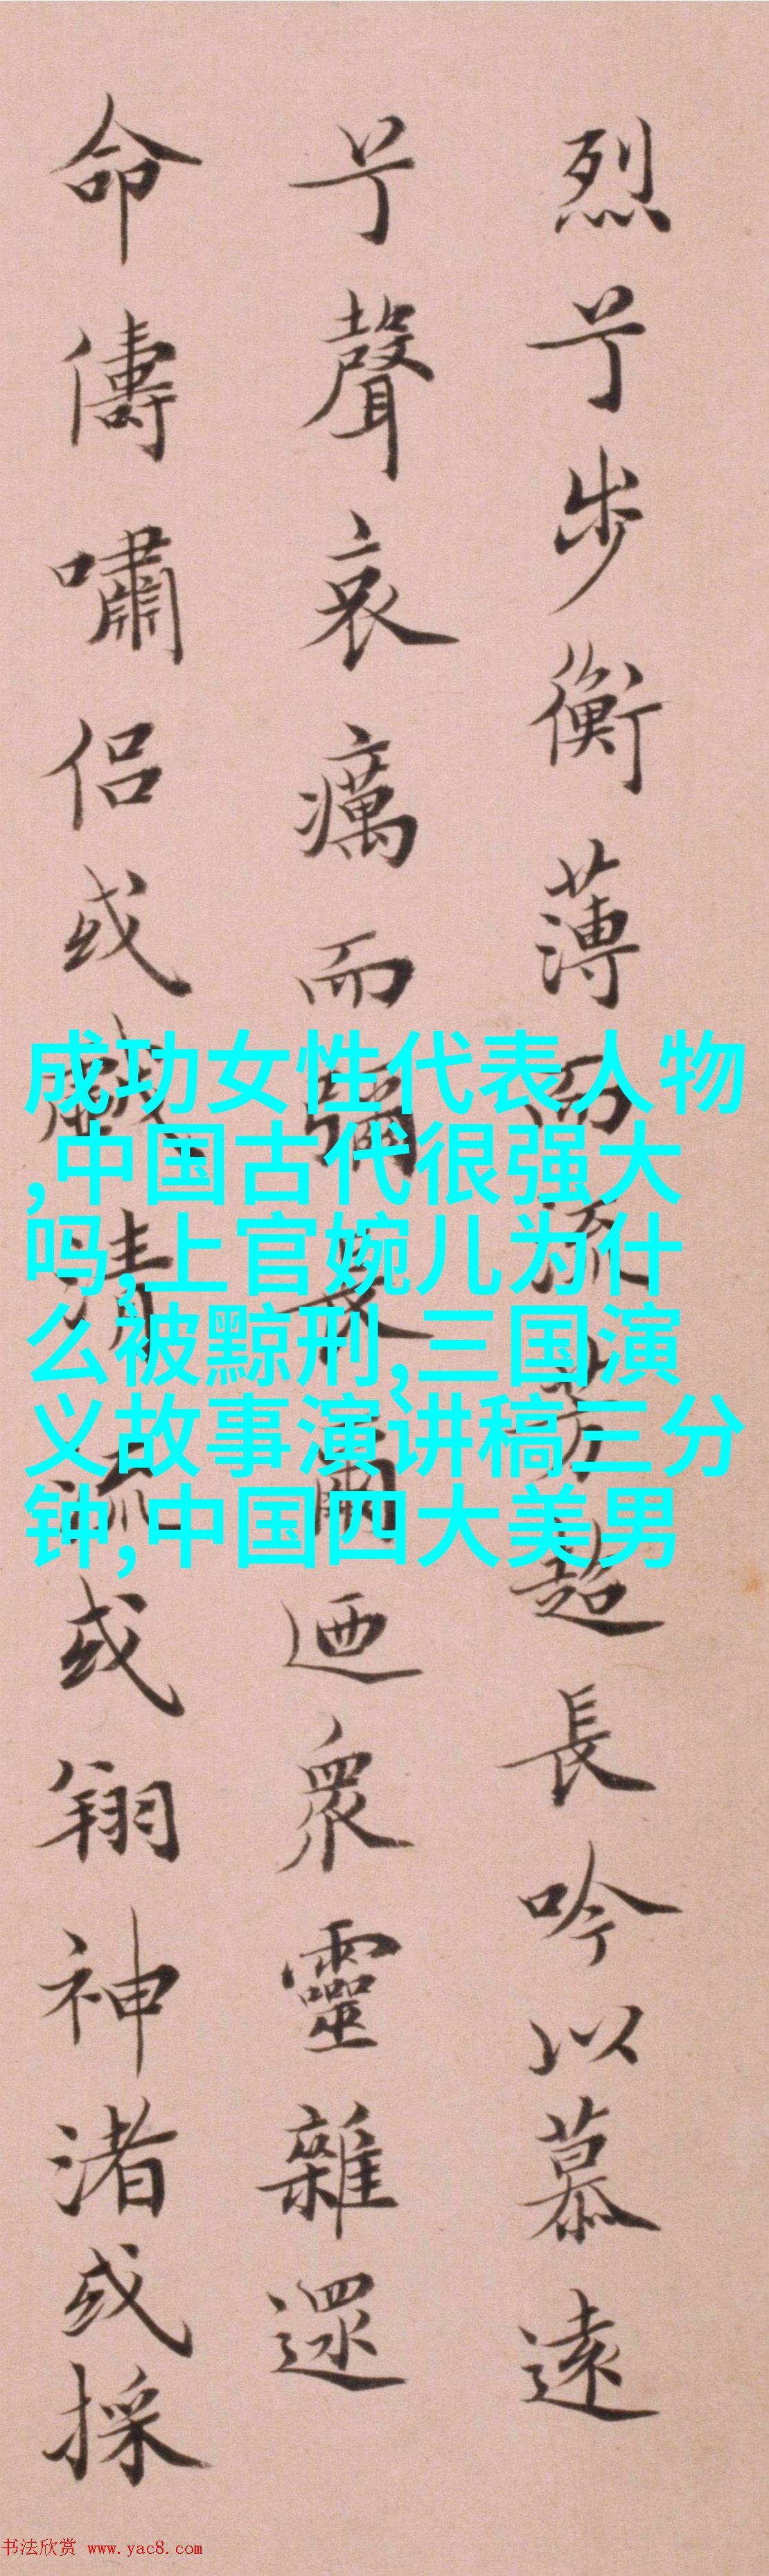 烈兮步衡薄而流芳超長吟以慕遠
兮聲哀癘而彌長爾迺眾靈雜遝
命儔嘯侶或戲清流或翔神渚或採
成功女性代表人物
,中国古代很强大
吗,上官婉儿为什
么被黥刑,三国演
义故事演讲稿三分
钟,中国四大美男
书法欣赏 www.yac8.com